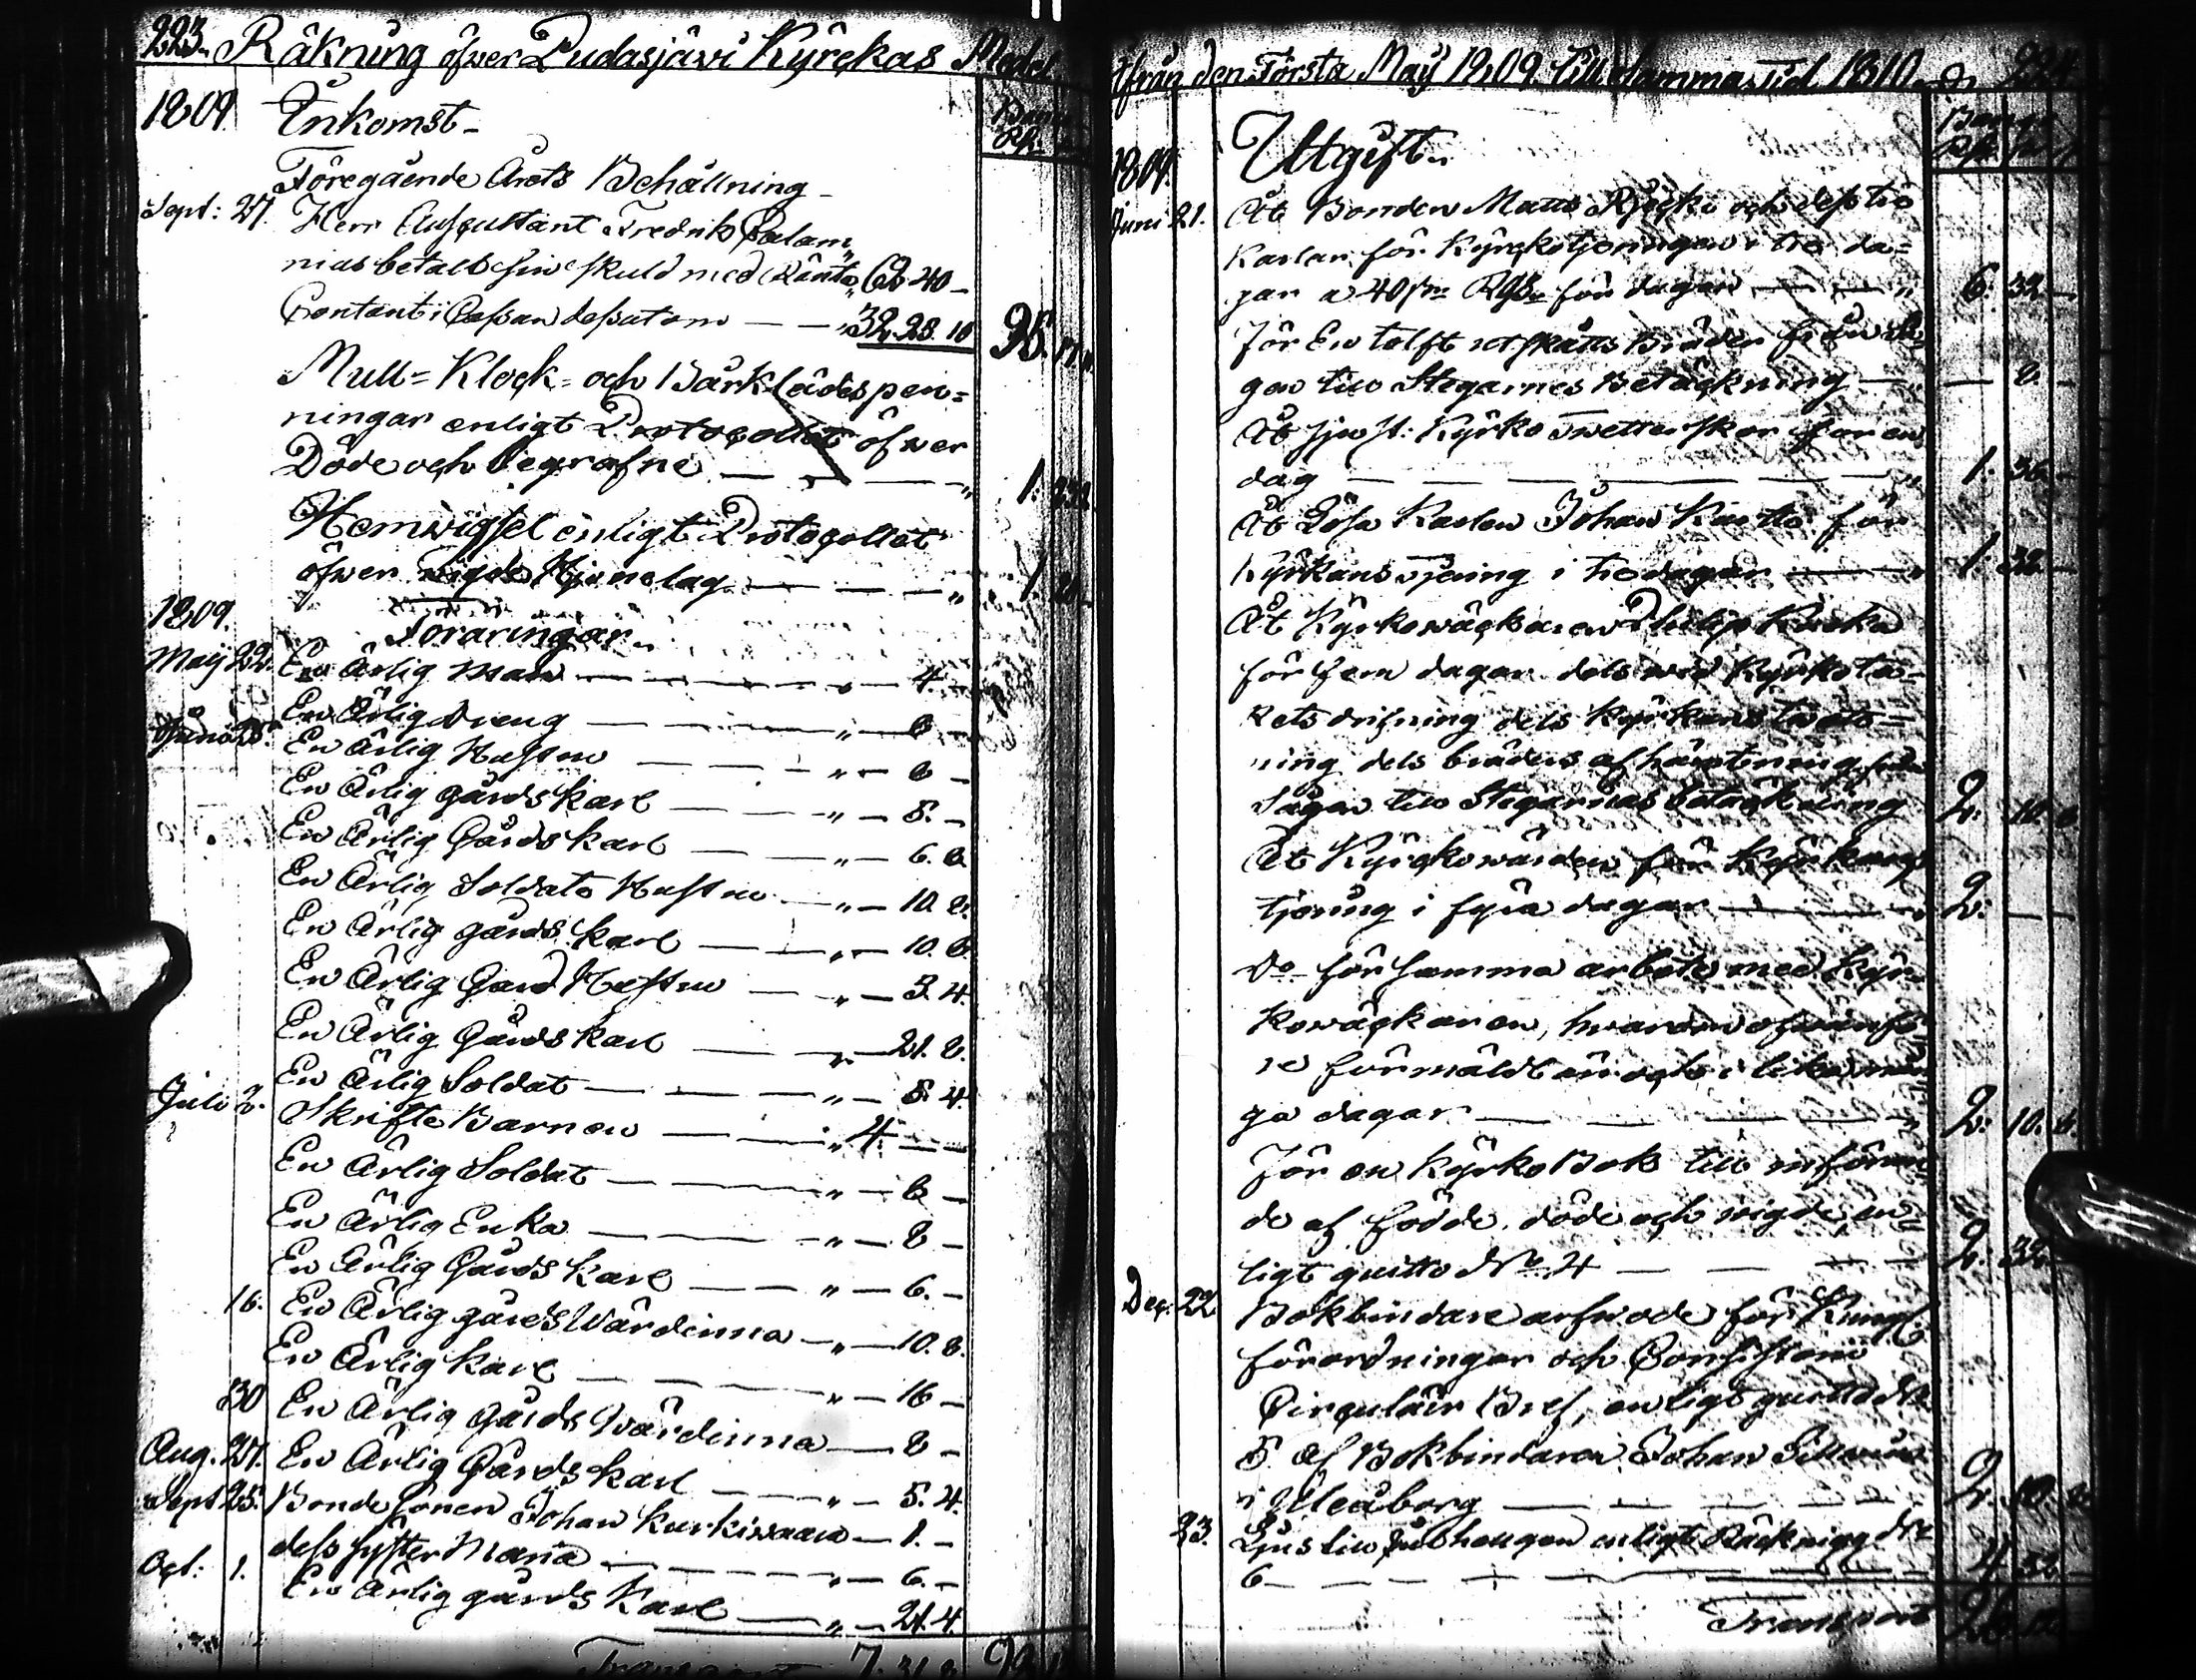 223. Räkning öfwer Pudasjäwi Kyrckas Medel
1809. Inkomst
Föregående Årets Behållning
Sept: 27. Herr Auscultant Fredrik Calam„
nius betalt sin skuld med Ränta, 62. 40 –
Contant i Cassan dessutom — — „ 32. 28. 10
95.
Mull= Klock= och Bårklädespen=
ningar enligt Protocollet öfwer
Döde och begrafne — — — „ 1.
Hemwigsel enligt Protocollet
öfwer wigde Hjonelag — — — „ 1.
1809.
Föräringar.
Maij 22. En Ärlig Man — — — „ — 4. –
En Ärlig Dreng — — — „ — 8 –
En Ärlig Hustru — — — „ — 8 –
En Ärlig gårds Karl — — „ — 8. –
En Ärlig Gårds Karl — — „ — 6. 8.
En Ärlig Soldats Hustru — „ — 10. 8.
En Ärlig gårds Karl — — „ — 10. 8.
En Ärlig Gård Hustru — „ — 3. 4.
En Ärlig Gårds Karl — — „ — 21. 8.
En Ärlig Soldat — — — „ — 8. 4.
Juli 2. Skrifte Barnen — — — „ 4. — –
En Ärlig Soldat — — — „ — 6 –
En Ärlig Enka — — — „ — 8 –
En Ärlig Gårds Karl — — „ — 6. –
16. En Ärlig gårds Wärdinna — „ — 10. 8.
En Ärlig Karl — — — „ — 16 –
30 En Ärlig Gårds Wärdinna — 8 –
Aug. 27. En Ärlig Gårds Karl — „ — 5. 4.
Sept 25. Bonde Sonen Johan Kurkiwaara — 1. –
dess syster Maria — — — „ — 6. –
Oct: 1. En Ärlig gårds Karl — — „ — 21. 4.
Transport 7.
ifrån den Första Maij 1809. till samma Tid 1810. 224
1809. Utgift.
Juni 21. Åt Bonden Matts och dess tio
Karlar för Kyrckotjeringen i tre da=
gar a 40 för dagen — — „ 6. 32. —
För En tolft bräder från Så
gen till Stegarnes Betäckning — „ — 8. –
Åt sju st: Kyrko Twetterskor för en
dag — — — — — „ 1. 36. –
Åt Lösa Karlen Johan för
Kyrkans tjering i tre dagar — — „ 1. 32. –
Åt Kyrkowäckaren Philip
för fem dagar dels wid Kyrkota=
kets drifning dels Kyrkans twätt=
ning dels bräders afhämtning från
Sågen till Stegarnas betäckning 2. 10.
Åt Kyrckowärden för Kyrkans
tjering i fyra dagar — — „ 2. — —
Do för samma arbete med Kyr=
kowäckaren, hwarom
förmäldt är och i lika mån
ga dagar — — — — „ 2. 10. 8.
För en Kyrko Bok till införan
de af födde, döde och wigde, en=
ligt quitto No 4 — — — 2. 32
Dec. 22. Bokbindare arfwode för Kungl.
förordningar och Consistorii
Circulair Bref, enligt quitto No
5. af Bokbindaren Johan
i Uleåborg — — — — 2. 10.
23. Ljus till Julhelgen enligt Räkning No
6 — — — — — 4. 32
Transport 26.